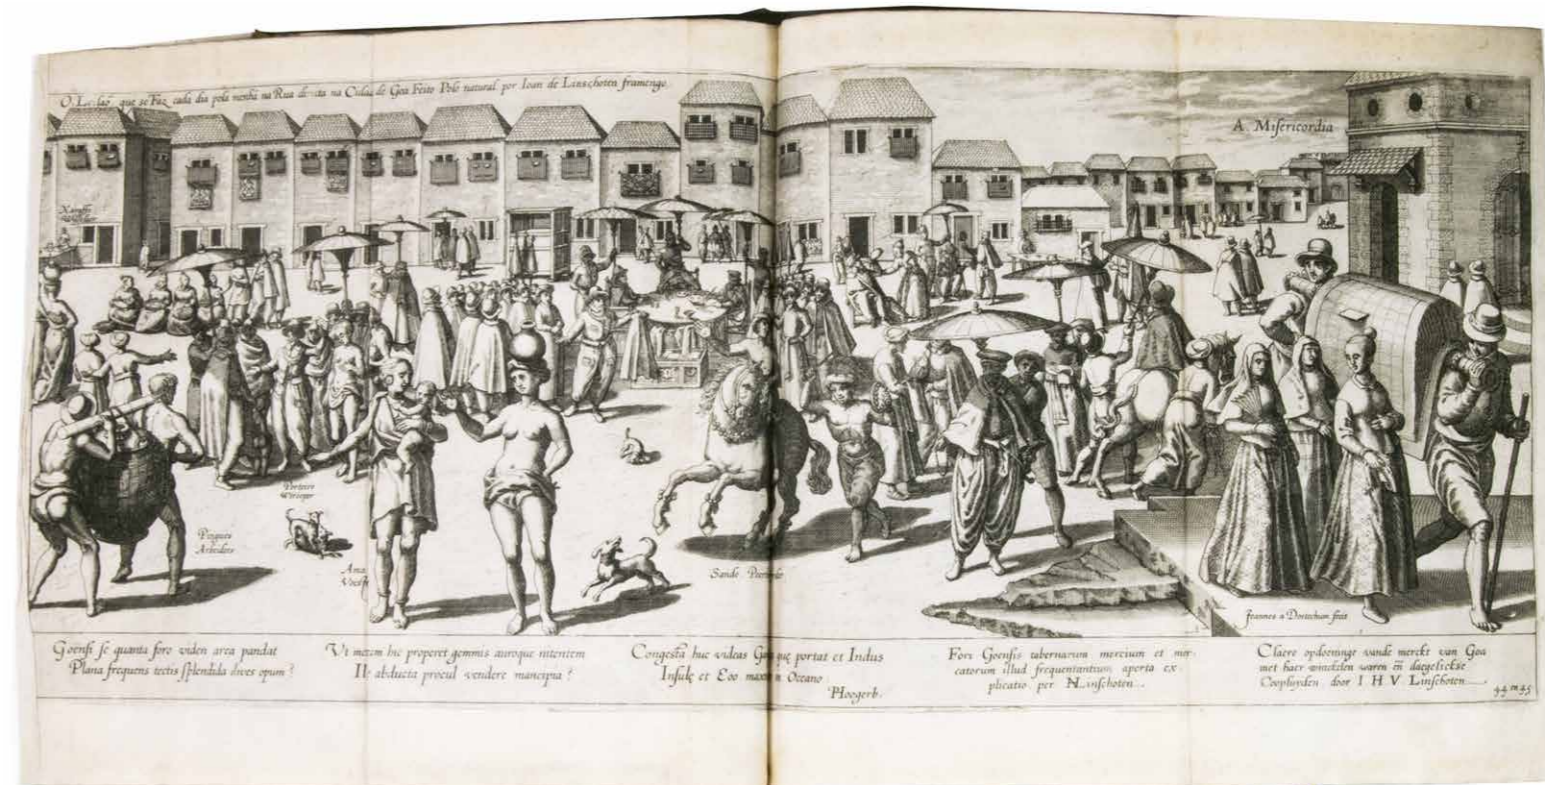 O Le lao que se Faz cada dia pola menhã na Rua de ita na Cidad de Goa Feito Polo natural por Ioan de Linschoten framengo.
A. Misericordia
Porteiro
Wtroeper
Pingueu
Arbeiders
Ama
Voester
Sande
Joannes a Doetechum fecit
Goënsi se quanta foro viden area pandat
Plana frequens tectis splendida dives opum?
Vt merum huc properet gemmis auroque nitentem
Ile abducta procul vendere mancipia?
Congestā huc videas que portat et Indus
Insulę et Eoo maxim Oceano
Hoogerb.
Fori Goensis tabernarum mercium et mer,,
catorum illud frequentantium aperta ex,,
plicatio per Linschoten.
Claere opdoeninge vande merckt van Goa
met haer winckelen waren eñ daegelickse
Coopluyden door I H V Linschoten
44 en 45